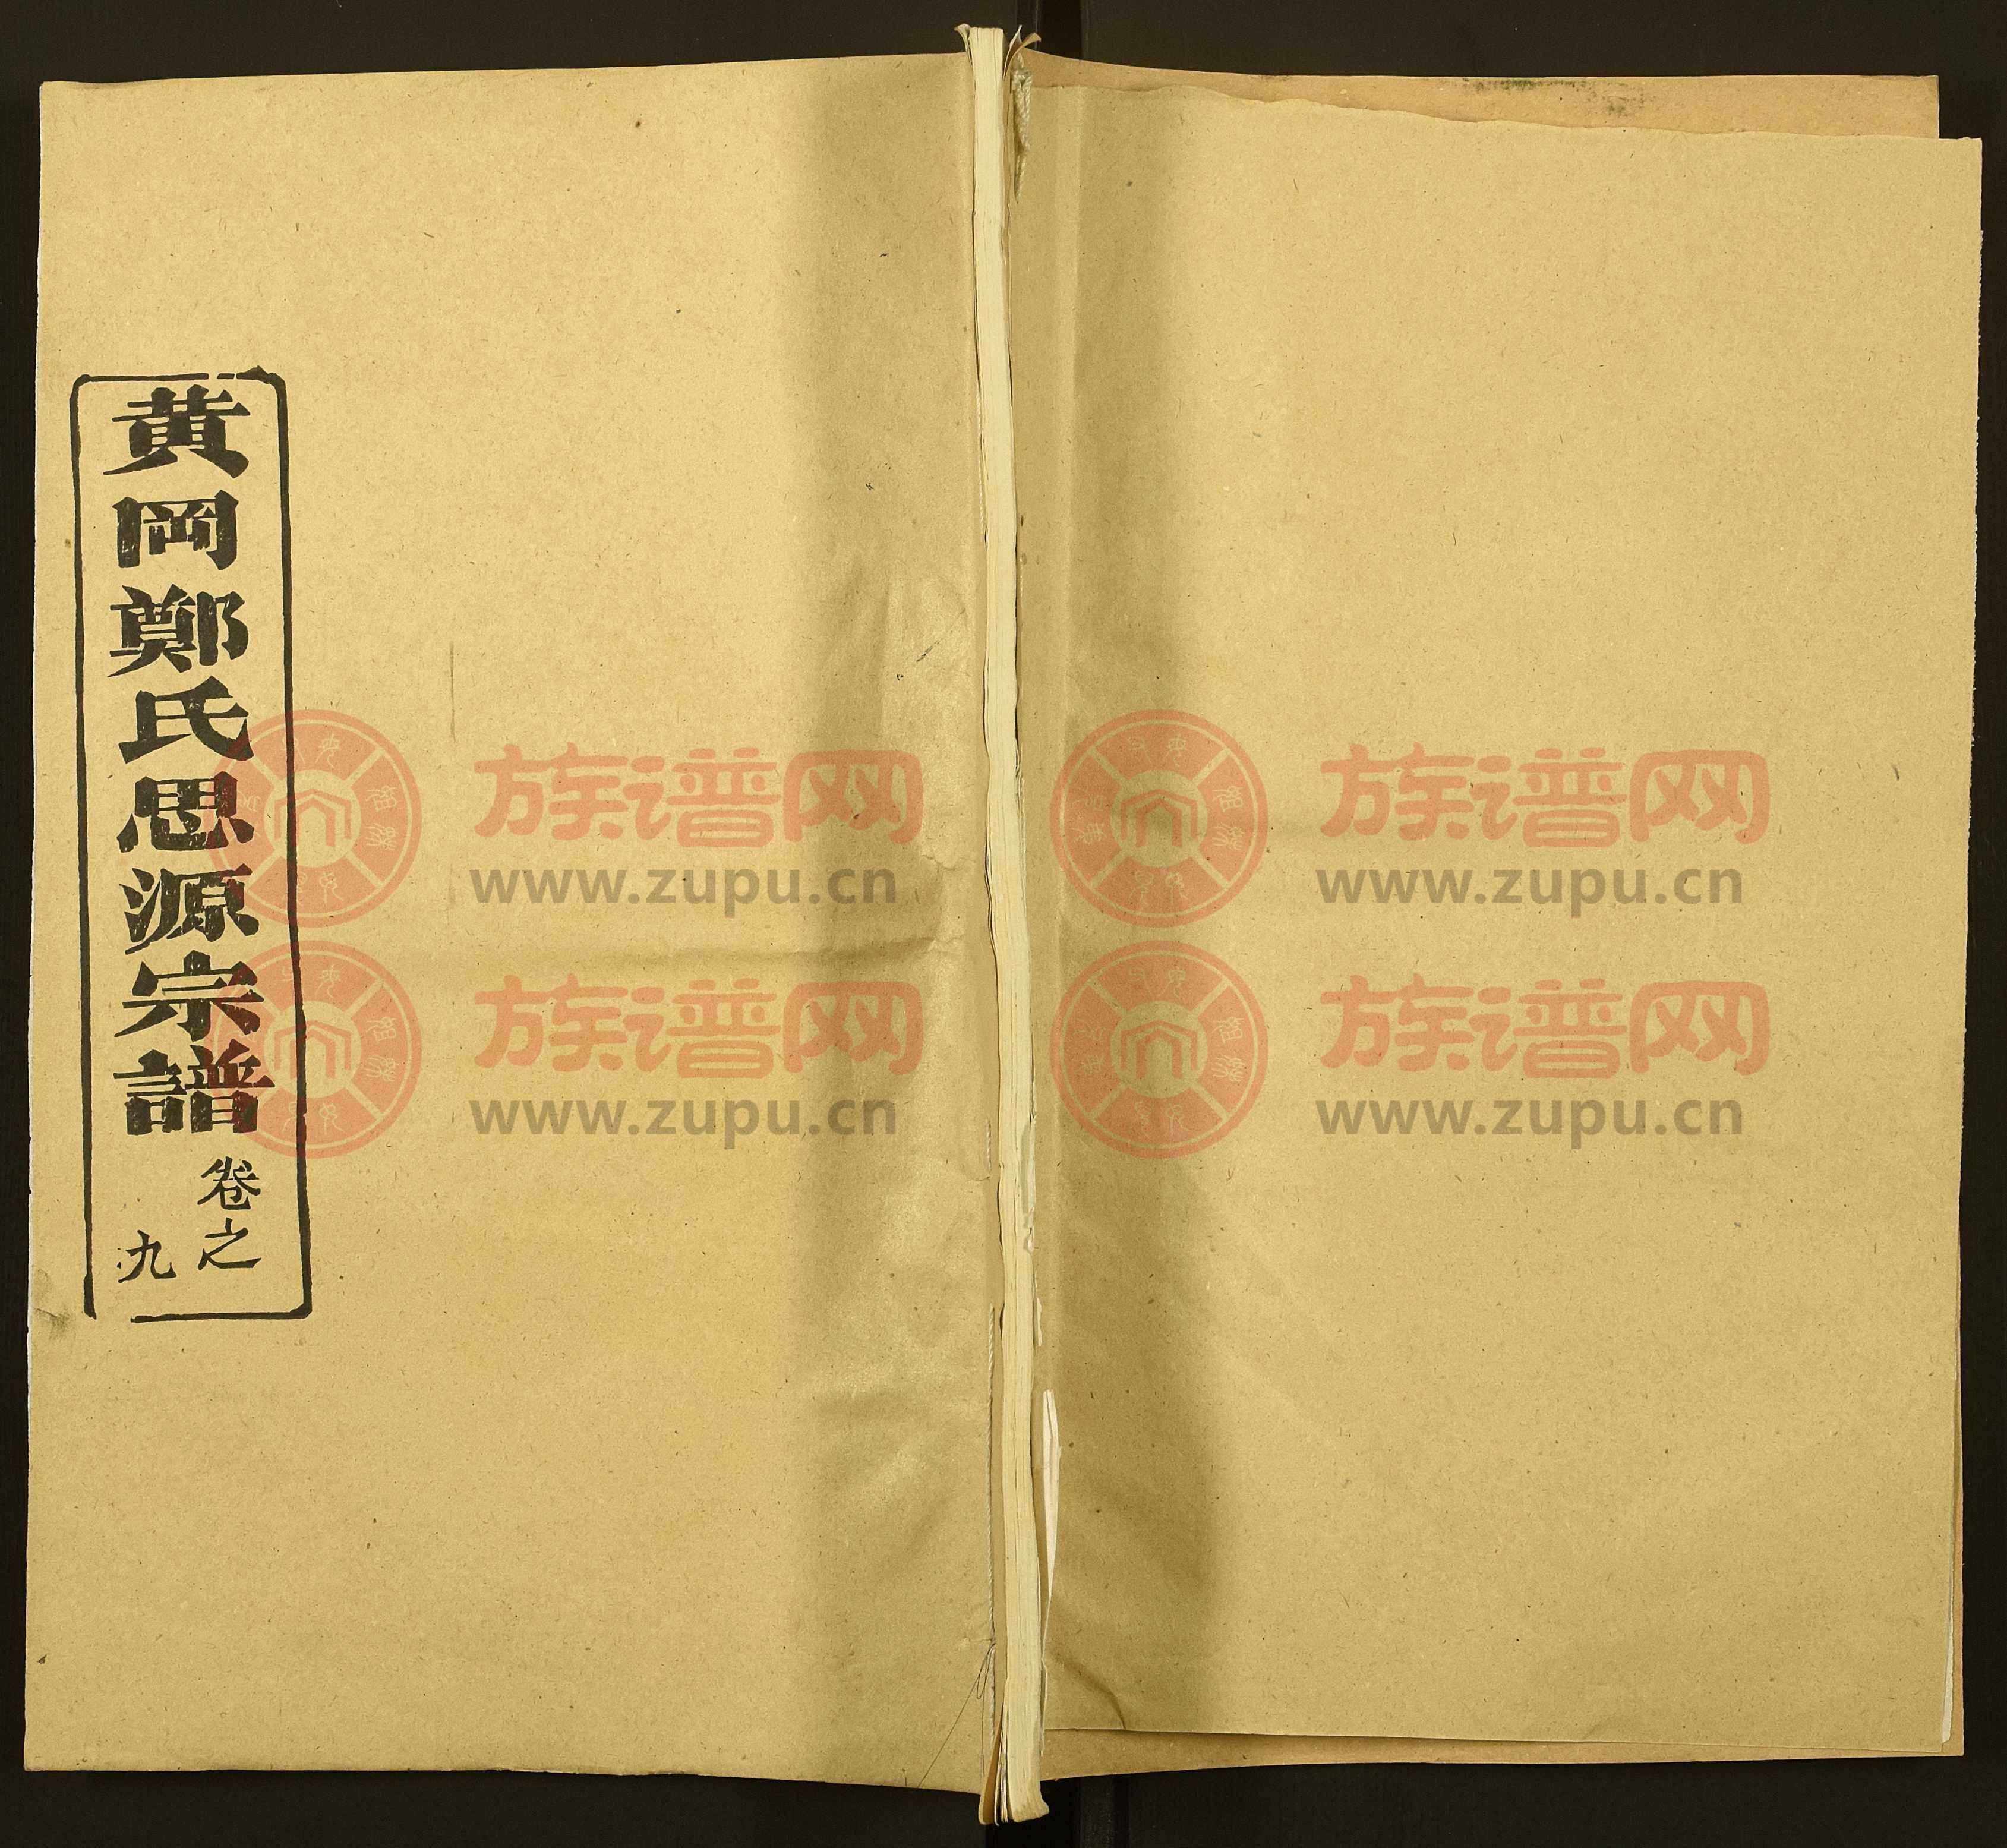 黄岡鄭氏思源宗譜
卷之
九
族谱网
www.zupu.cn
族谱网
www.zupu.cn
族谱网
www.zupu.cn
族谱网
www.zupu.cn